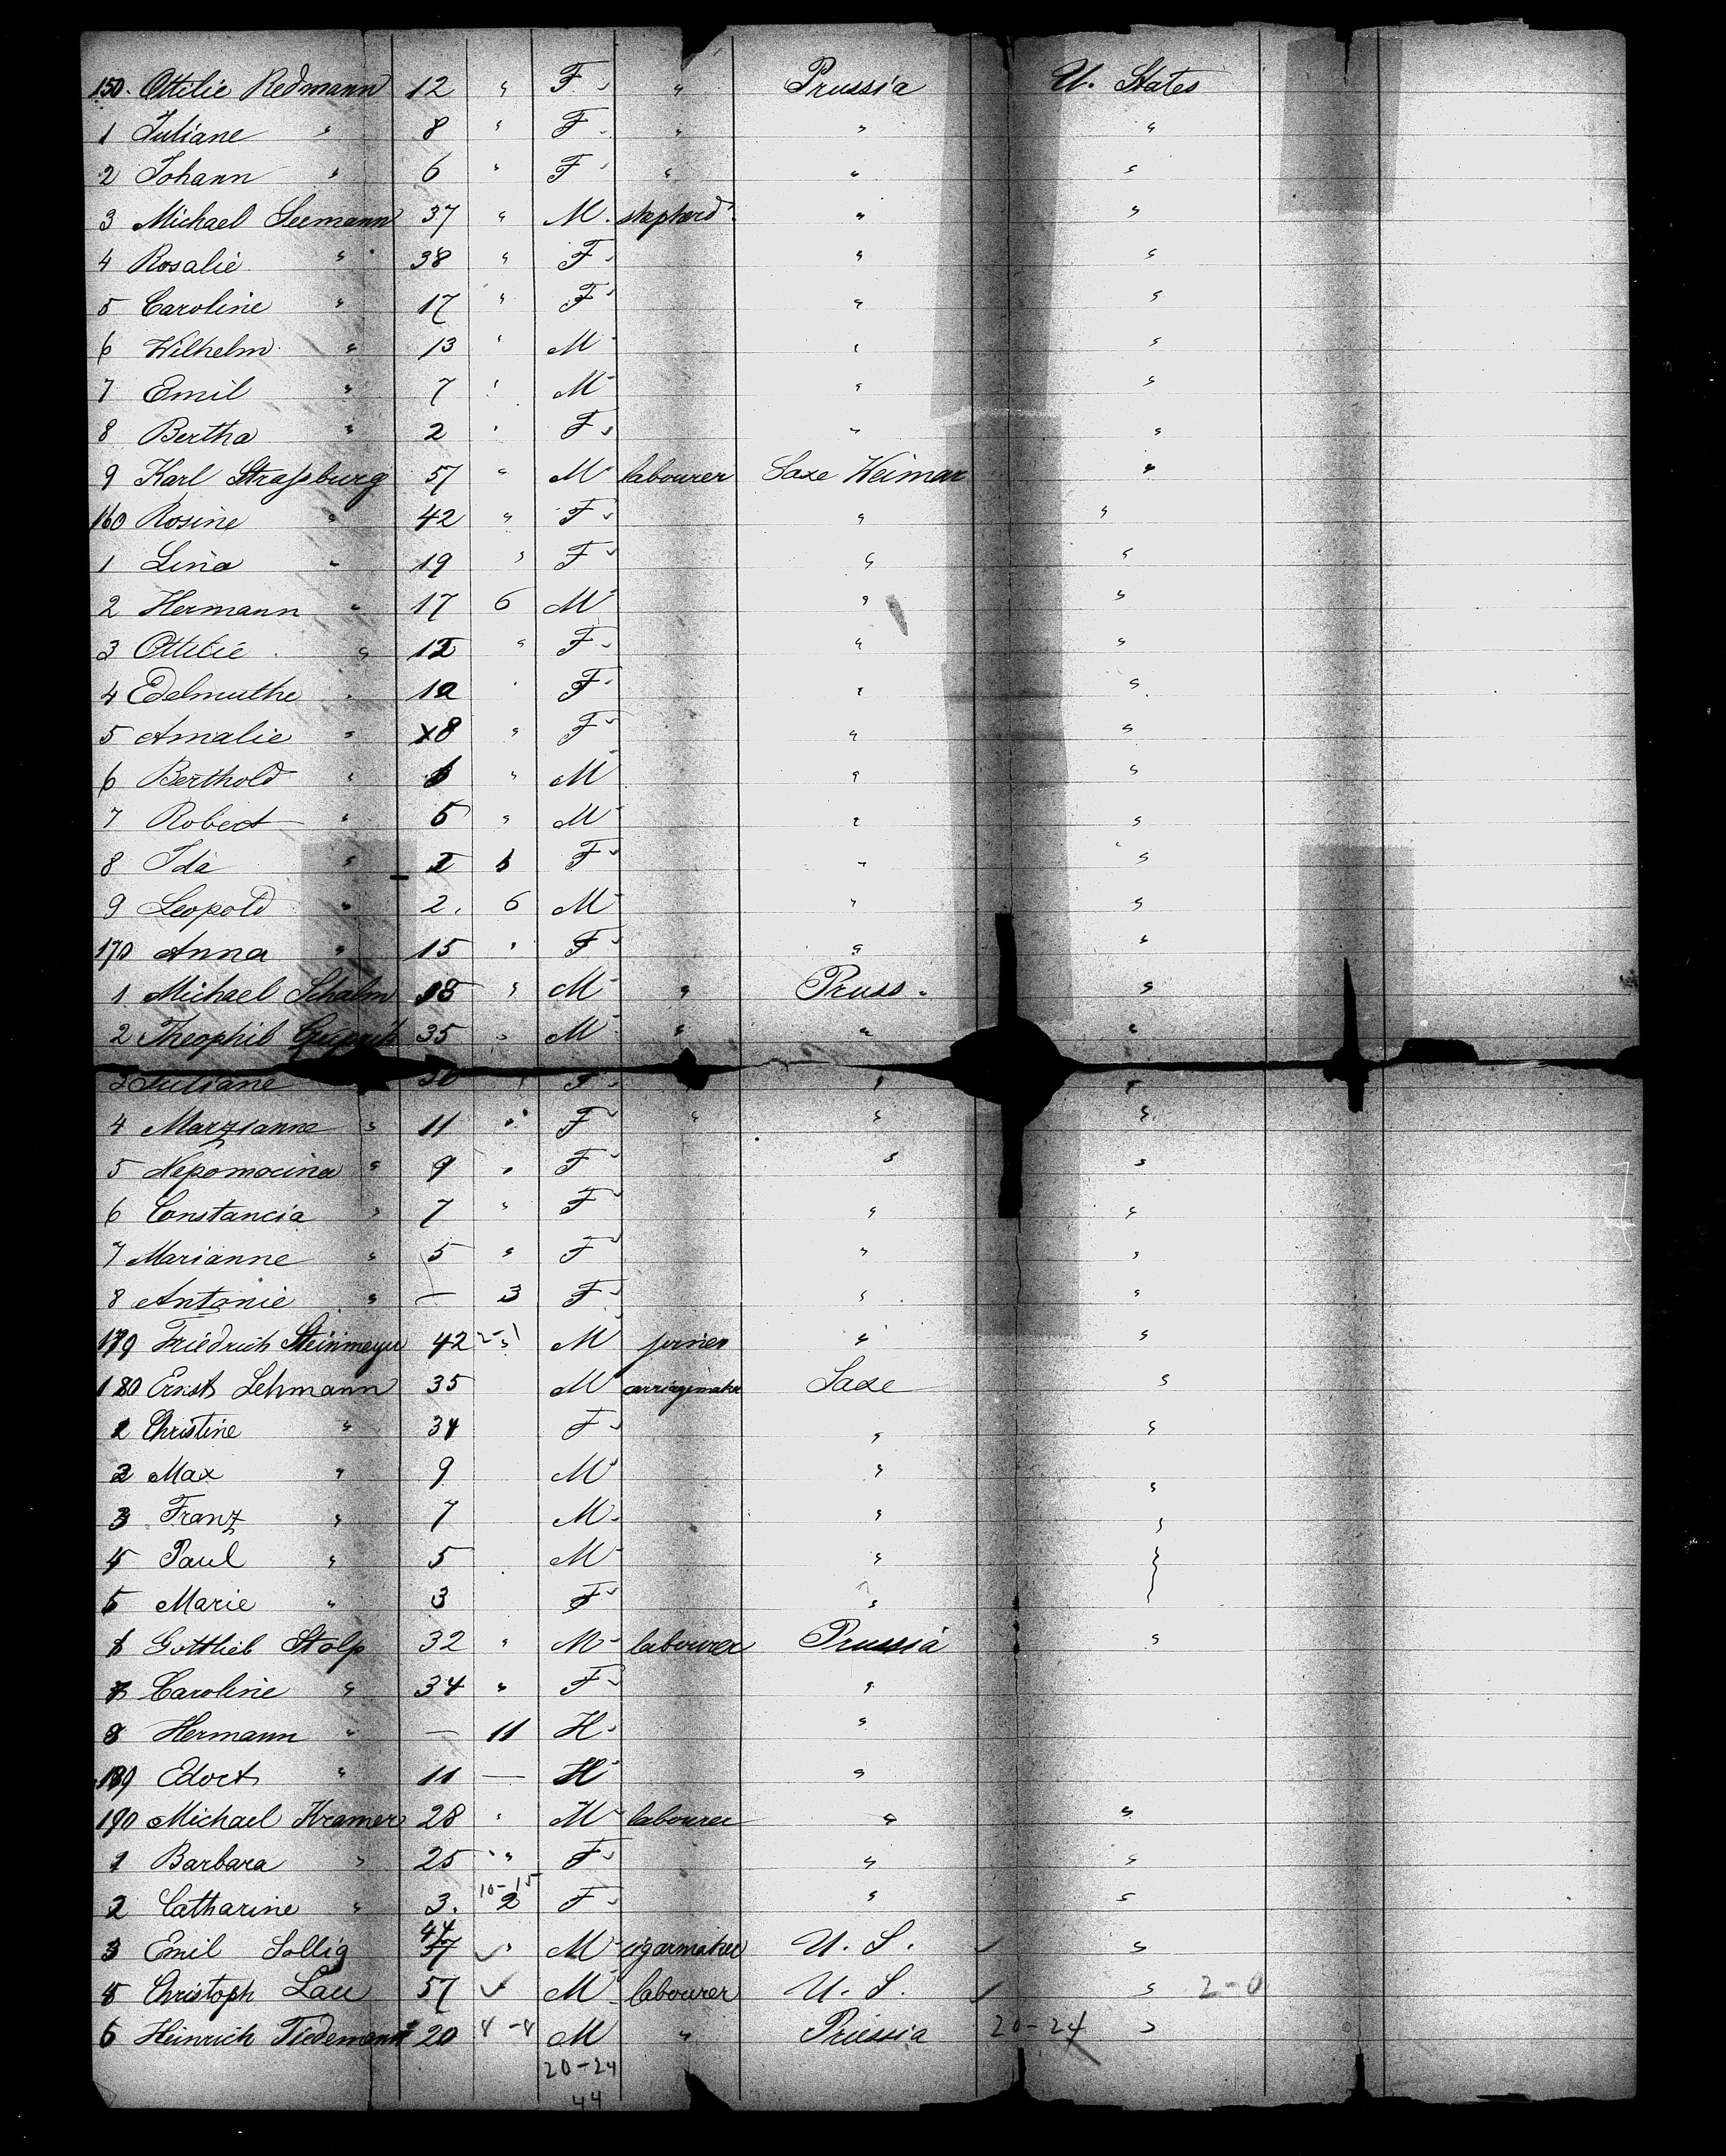 150. Ottilie Redmann 12 " F " Prussia U. States
1 Juliane " 8 " F " " "
2 Johann " 6 " F " " "
3 Michael Seemann 37 " M. shepherd " "
4 Rosalie " 38 " F " "
5 Caroline " 17 " F " "
6 Wilhelm " 13 " M " "
7 Emil " 7 " M " "
8 Bertha " 2 " F " "
9 Karl Straſsburg 57 " M labourer Saxe Weimar "
160 Rosine " 42 " F " "
1 Lina " 19 " F " "
2 Hermann " 17 6 M " "
3 Ottilie " 12 " F " "
4 Edelmuthe " 10 " F " "
5 Amalie " 8 " F " "
6 Berthold " " M " "
7 Robert " 5 " M " "
8 Ida " F " "
9 Leopold " 2. 6 M " "
170 Anna " 15 " F " "
1 Michael Schalm 18 " M " Pruss. "
2 Theophil 35 " M " " "
3 Juliane 30 " F " "
4 Marzianne " 11 " F " " "
5 Nepomocina " 9 " F " "
6 Constancia " 7 " F " "
7 Marianne " 5 " F " "
8 Antonie " — 3 F " "
179 Friedrich Steinmeyer 42 2-1 M joiner " "
180 Ernst Lehmann 35 M carriagemaker Saxe "
1 Christine " 34 F " "
2 Max " 9 M " "
3 Franz " 7 M " "
4 Paul " 5 M " "
5 Marie " 3 F " "
6 Gottlieb Stolp 32 " M labourer Prussia "
7 Caroline " 34 " F "
8 Hermann " — 11 H "
189 Edort " 11 — H "
190 Michael Kramer 28 " M labourer " "
1 Barbara " 25 " F " "
10-15
2 Catharine " 3. 2 F " "
44
3 Emil Sollig 37 " M cigarmaker U. S. "
5 Christoph Lau 57 M labourer U. S. " 2-0
6 Heinrich Tiedemann 20 8-8 M " Prussia 20-24 "
20-24
44